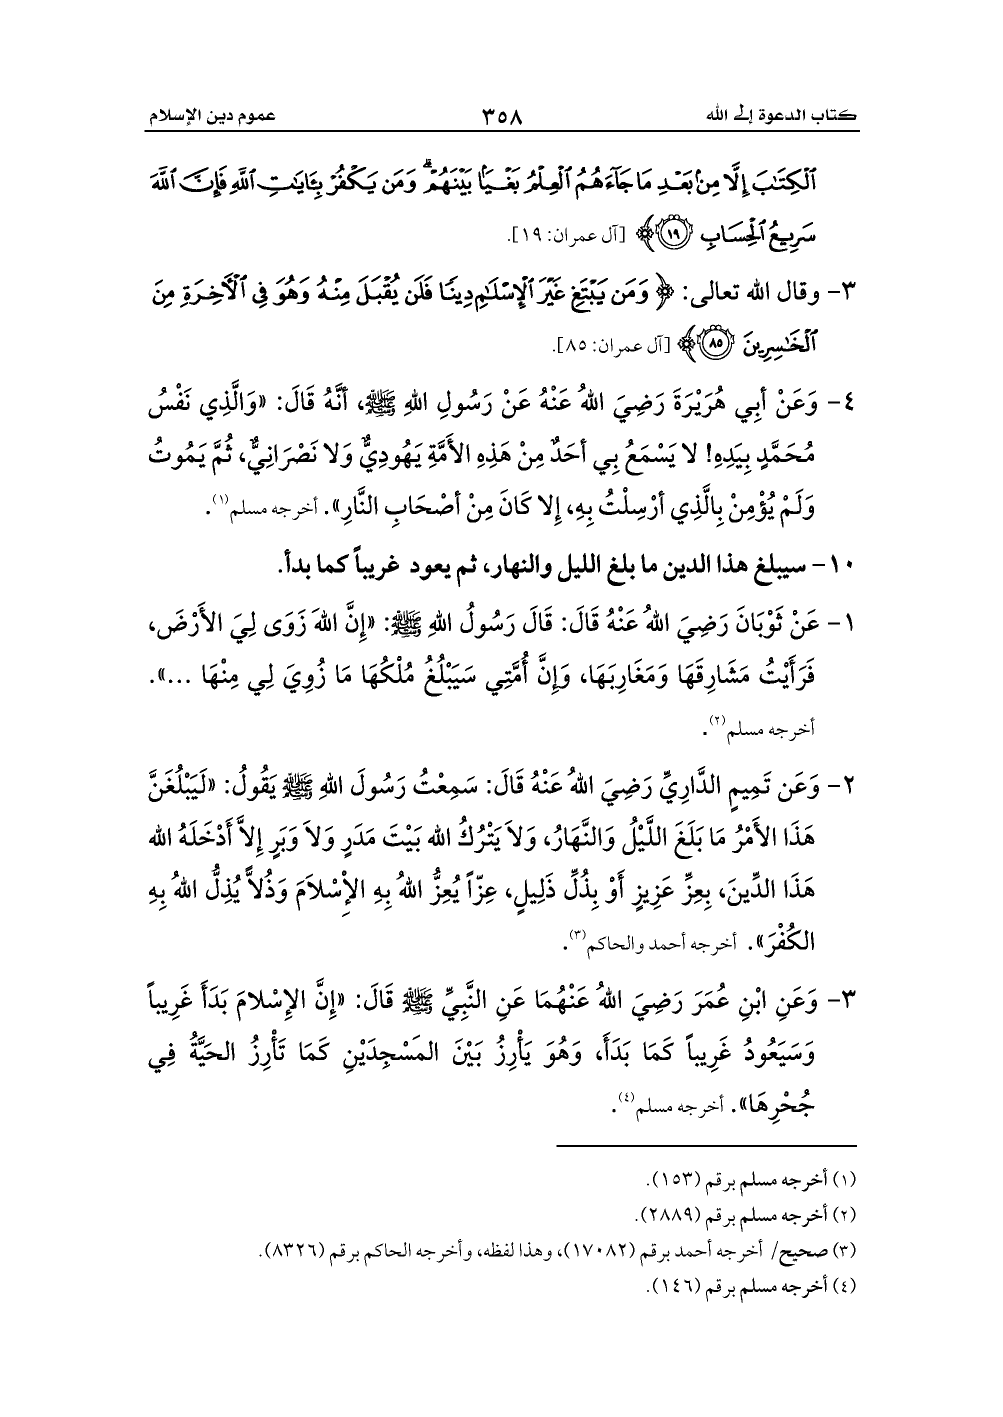 كتاب الدعوة إلى الله ٣٥٨ عموم دين الإسلام
ٱلْكِتَٰبَ إِلَّا مِنۢ بَعْدِ مَا جَآءَهُمُ ٱلْعِلْمُ بَغْيَۢا بَيْنَهُمْ ۗ وَمَن يَكْفُرْ بِـَٔايَٰتِ ٱللَّهِ فَإِنَّ ٱللَّهَ
سَرِيعُ ٱلْحِسَابِ ﴿١٩﴾ [آل عمران: ١٩].
٣- وقال الله تعالى: ﴿ وَمَن يَبْتَغِ غَيْرَ ٱلْإِسْلَٰمِ دِينًا فَلَن يُقْبَلَ مِنْهُ وَهُوَ فِى ٱلْأَخِرَةِ مِنَ
ٱلْخَٰسِرِينَ ﴿٨٥﴾ [آل عمران: ٨٥].
٤- وَعَنْ أَبِي هُرَيْرَةَ رَضِيَ اللهُ عَنْهُ عَنْ رَسُولِ اللهِ ﷺ، أنَّهُ قَالَ: «وَالَّذِي نَفْسُ
مُحَمَّدٍ بِيَدِهِ! لا يَسْمَعُ بِي أحَدٌ مِنْ هَذِهِ الأمَّةِ يَهُودِيٌّ وَلا نَصْرَانِيٌّ، ثُمَّ يَمُوتُ
وَلَمْ يُؤْمِنْ بِالَّذِي أرْسِلْتُ بِهِ، إِلا كَانَ مِنْ أصْحَابِ النَّارِ». أخرجه مسلم(١).
١٠- سيبلغ هذا الدين ما بلغ الليل والنهار، ثم يعود غريباً كما بدأ.
١- عَنْ ثَوْبَانَ رَضِيَ اللهُ عَنْهُ قَالَ: قَالَ رَسُولُ اللهِ ﷺ: «إِنَّ اللهَ زَوَى لِيَ الأَرْضَ،
فَرَأَيْتُ مَشَارِقَهَا وَمَغَارِبَهَا، وَإِنَّ أُمَّتِي سَيَبْلُغُ مُلْكُهَا مَا زُوِيَ لِي مِنْهَا ...».
أخرجه مسلم(٢).
٢- وَعَن تَمِيمٍ الدَّارِيِّ رَضِيَ اللهُ عَنْهُ قَالَ: سَمِعْتُ رَسُولَ اللهِ ﷺ يَقُولُ: «لَيَبْلُغَنَّ
هَذَا الأَمْرُ مَا بَلَغَ اللَّيْلُ وَالنَّهَارُ، وَلاَ يَتْرُكُ الله بَيْتَ مَدَرٍ وَلاَ وَبَرٍ إِلاَّ أَدْخَلَهُ الله
هَذَا الدِّينَ، بِعِزِّ عَزِيزٍ أَوْ بِذُلِّ ذَلِيلٍ، عِزّاً يُعِزُّ اللهُ بِهِ الإِسْلاَمَ وَذُلاًّ يُذِلُّ اللهُ بِهِ
الكُفْرَ». أخرجه أحمد والحاكم(٣).
٣- وَعَنِ ابْنِ عُمَرَ رَضِيَ اللهُ عَنْهُمَا عَنِ النَّبِيِّ ﷺ قَالَ: «إِنَّ الإِسْلامَ بَدَأَ غَرِيباً
وَسَيَعُودُ غَرِيباً كَمَا بَدَأَ، وَهُوَ يَأْرِزُ بَيْنَ المَسْجِدَيْنِ كَمَا تَأْرِزُ الحَيَّةُ فِي
جُحْرِهَا». أخرجه مسلم(٤).
(١) أخرجه مسلم برقم (١٥٣).
(٢) أخرجه مسلم برقم (٢٨٨٩).
(٣) صحيح/ أخرجه أحمد برقم (١٧٠٨٢)، وهذا لفظه، وأخرجه الحاكم برقم (٨٣٢٦).
(٤) أخرجه مسلم برقم (١٤٦).